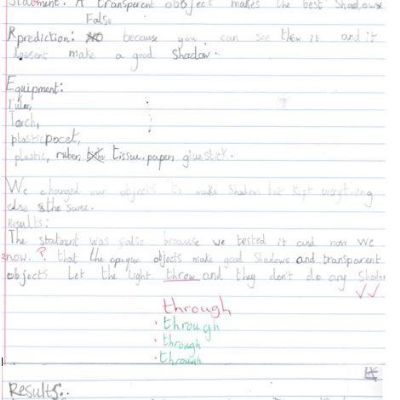 Statment: A transparent object makes the best shadows
False
Rprediction: because you can see thew it and it
doesent make a good shadow.
Equipment:
ruler,
Torch,
plastic pocet,
plastic, ruber, tissue, paper, glue stick.
We changed our objects to make shadow but kept everything
else the same.
results:
The statment was false because we tested it and now we
know. ? that the opaque objects make good shadows and transparent
objects let the light threw and they don't do any shadow
through
· through
· through
· through
Results..